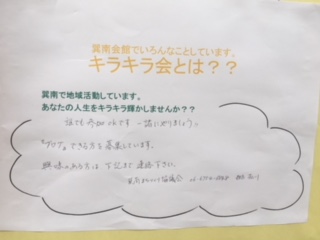 箕南会館でいろんなことしています。
キラキラ会とは？？
箕南で地域活動しています。
あなたの人生をキラキラ輝かしませんか？？
誰でも参加OKです 一緒にやりましょう
できる方を募集しています。
興味のある方は下記まで連絡下さい。